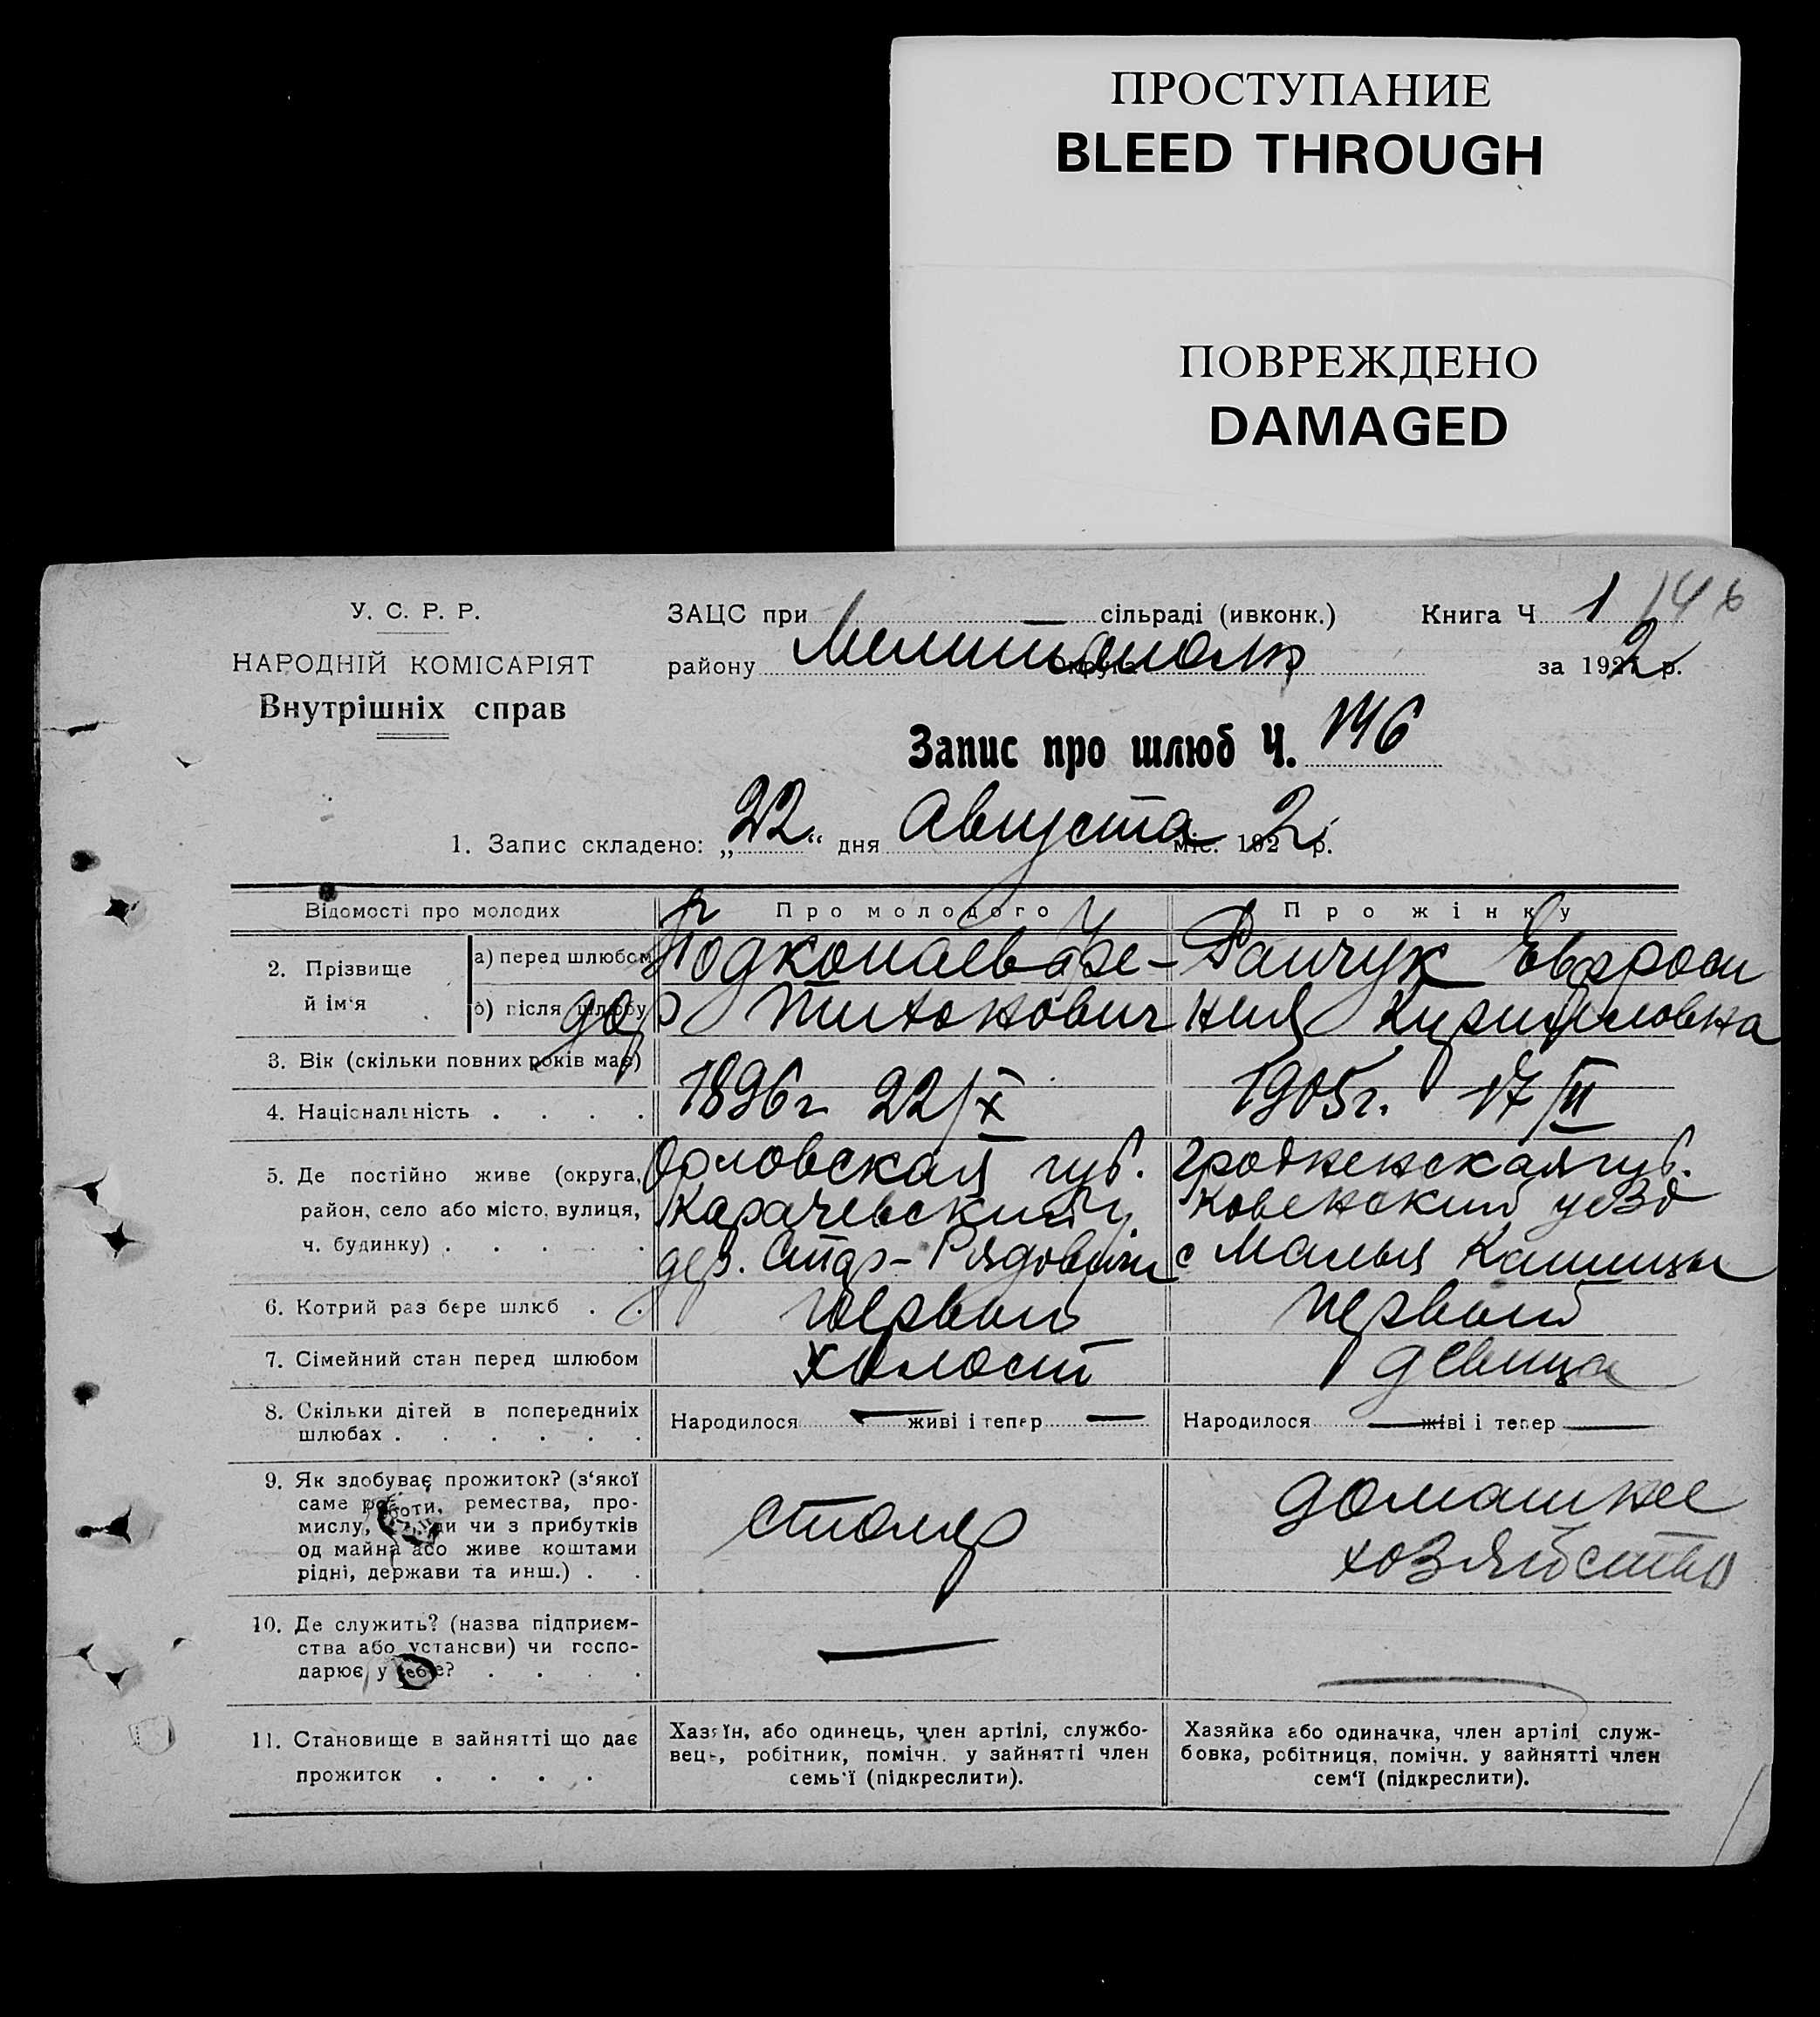 ПРОСТУПАНИЕ
BLEED THROUGH
ПОВРЕЖДЕНО
DAMAGED
У. С. Р. Р.
НАРОДНІЙ КОМІСАРІЯТ
Внутрішніх справ
ЗАЦС при сільраді (ивконк.) Книга Ч 1 146
району Мелитополь округа за 1922 р.
Запис про шлюб Ч. 146
1. Запис складено: „22“ дня Августа міс. 1922 р.
Відомості про молодих
Про молодого
Про жінку
2. Прізвище й ім‘я
а) перед шлюбом
б) після шлюбу
Подкопаев Фе-
дор Тихонович
Ранчук Евфроси
ния Кирилловна
3. Вік (скільки повних років має)
4. Національність . . . .
1896 г 22/X
1905 г. 17/II
5. Де постійно живе (округа,
район, село або місто, вулиця,
ч. будинку) . . . . .
Орловская губ.
Карачевский у
дер. Стар-Рядовичи
Гродненская губ.
Ковенский уезд
с Малыя
6. Котрий раз бере шлюб . .
первый
первый
7. Сімейний стан перед шлюбом
холост
девица
8. Скільки дітей в попередниіх
шлюбах . . . . . .
Народилося — живі і тепер —
Народилося — живі і тепер —
9. Як здобуває прожиток? (з‘якої
саме роботи, ремества, про-
мислу, чи з прибутків
од майна або живе коштами
рідні, держави та инш.) . .
столяр
домашнее
хозяйство
10. Де служить? (назва підприєм-
ства або установи) чи госпо-
дарює у себе? . . . .
—
—
11. Становище в зайнятті що дає
прожиток . . . .
Хазяїн, або одинець, член артілі, службо-
вець, робітник, помічн. у зайнятті член
семь‘ї (підкреслити).
Хазяйка або одиначка, член артілі служ-
бовка, робітниця, помічн. у зайнятті член
сем‘ї (підкреслити).